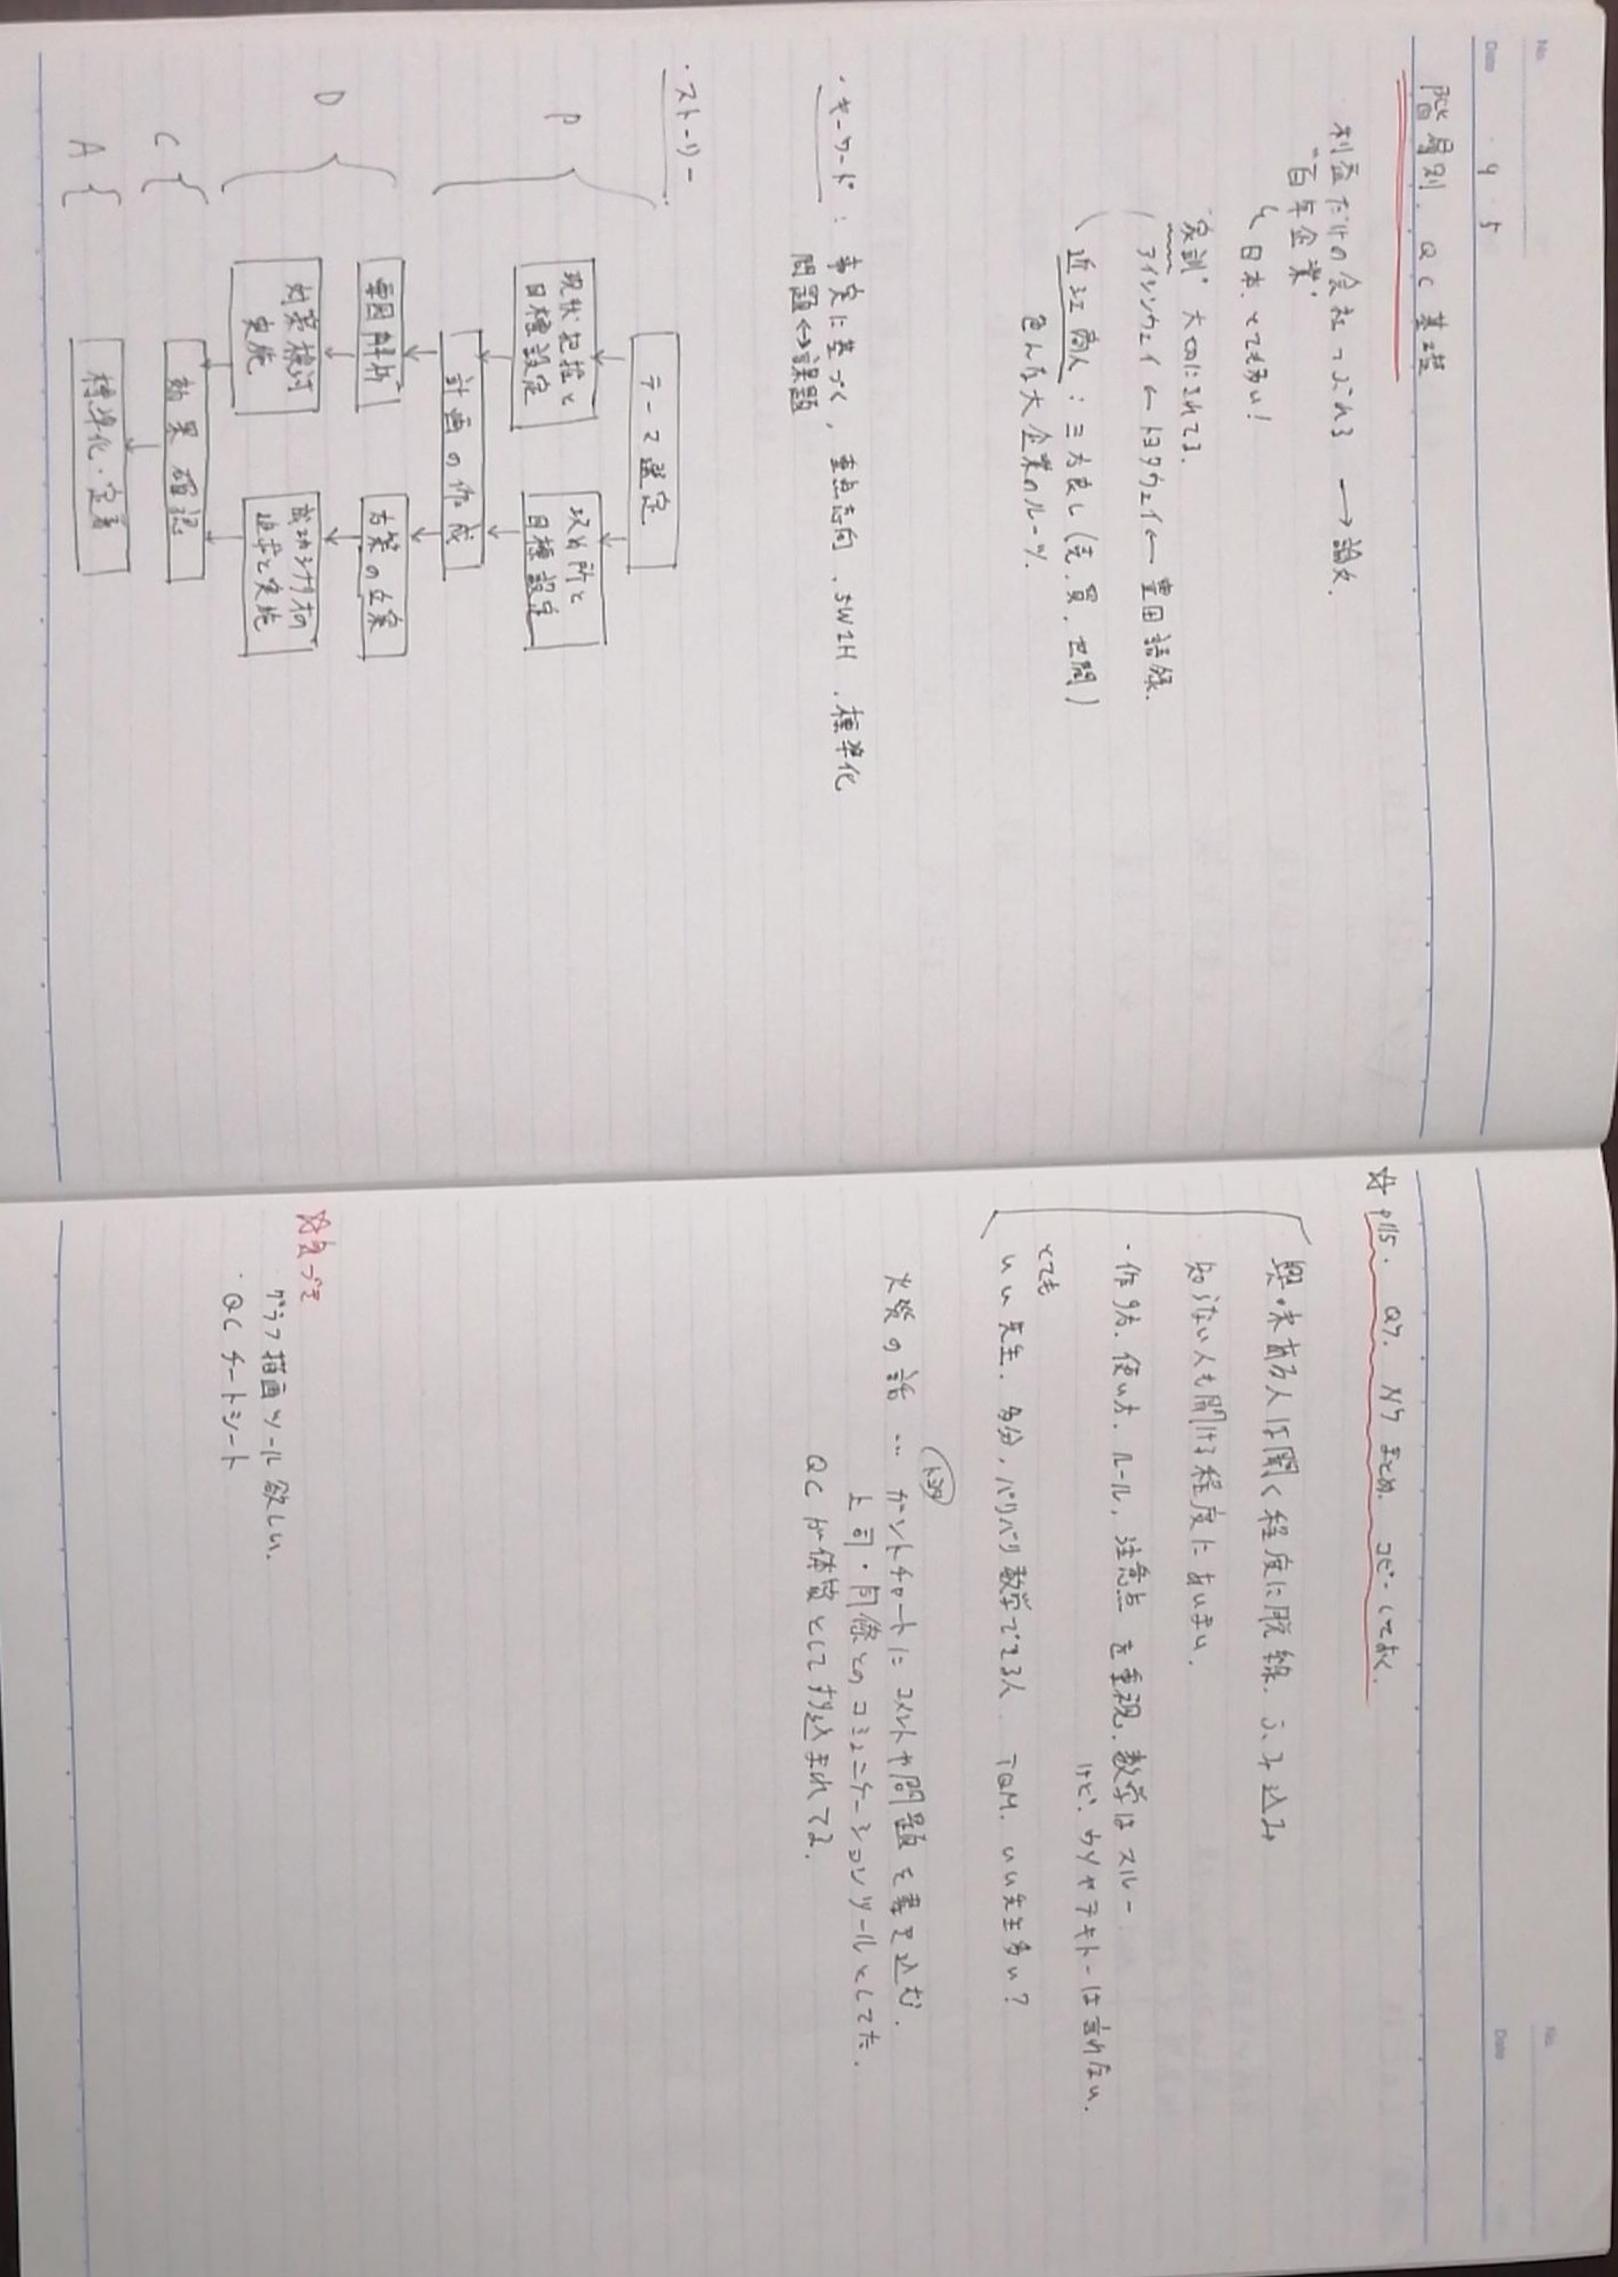 No.
Date 9 5
階層別. QC 基礎
利益だけの会社 つぶれる → 論文.
"百年企業"
日本、とても多い!
"家訓" 大切にされてる.
アイシンウェイ ← トヨタウェイ ← 豊田語録.
近江商人 : 三方良し (売. 買. 世間)
色んな大企業のルーツ.
・キーワード : 事実に基づく, 重点志向, 5W1H, 標準化
問題 ↔ 課題
・ストーリー
テーマ選定
P
現状把握と
目標設定
攻め所と
目標設定
計画の作成
D
要因解析
方策の立案
対策検討
実施
成功シナリオの
追求と実施
C
効果確認
A
標準化・定着
No.
Date
☆ p115. Q7. N7 まとめ. コピーしておく.
興味ある人は聞く程度に脱線. うんちく込み
知らない人も聞ける程度にあいまい.
・作り方. 使い方. ルール. 注意点 を重視. 数学はスルー
けど. ウソやテキトーは言わない.
とても
いい先生. 多分, バリバリ数学できる人 TQM. いい先生多い?
トヨタ
火災の話 … ガントチャートにコメントや問題を書き込む.
上司・同僚とのコミュニケーションツールとしてた.
QCが体質としてすり込まれてる.
☆気づき
グラフ描画ツール欲しい.
・QC チートシート